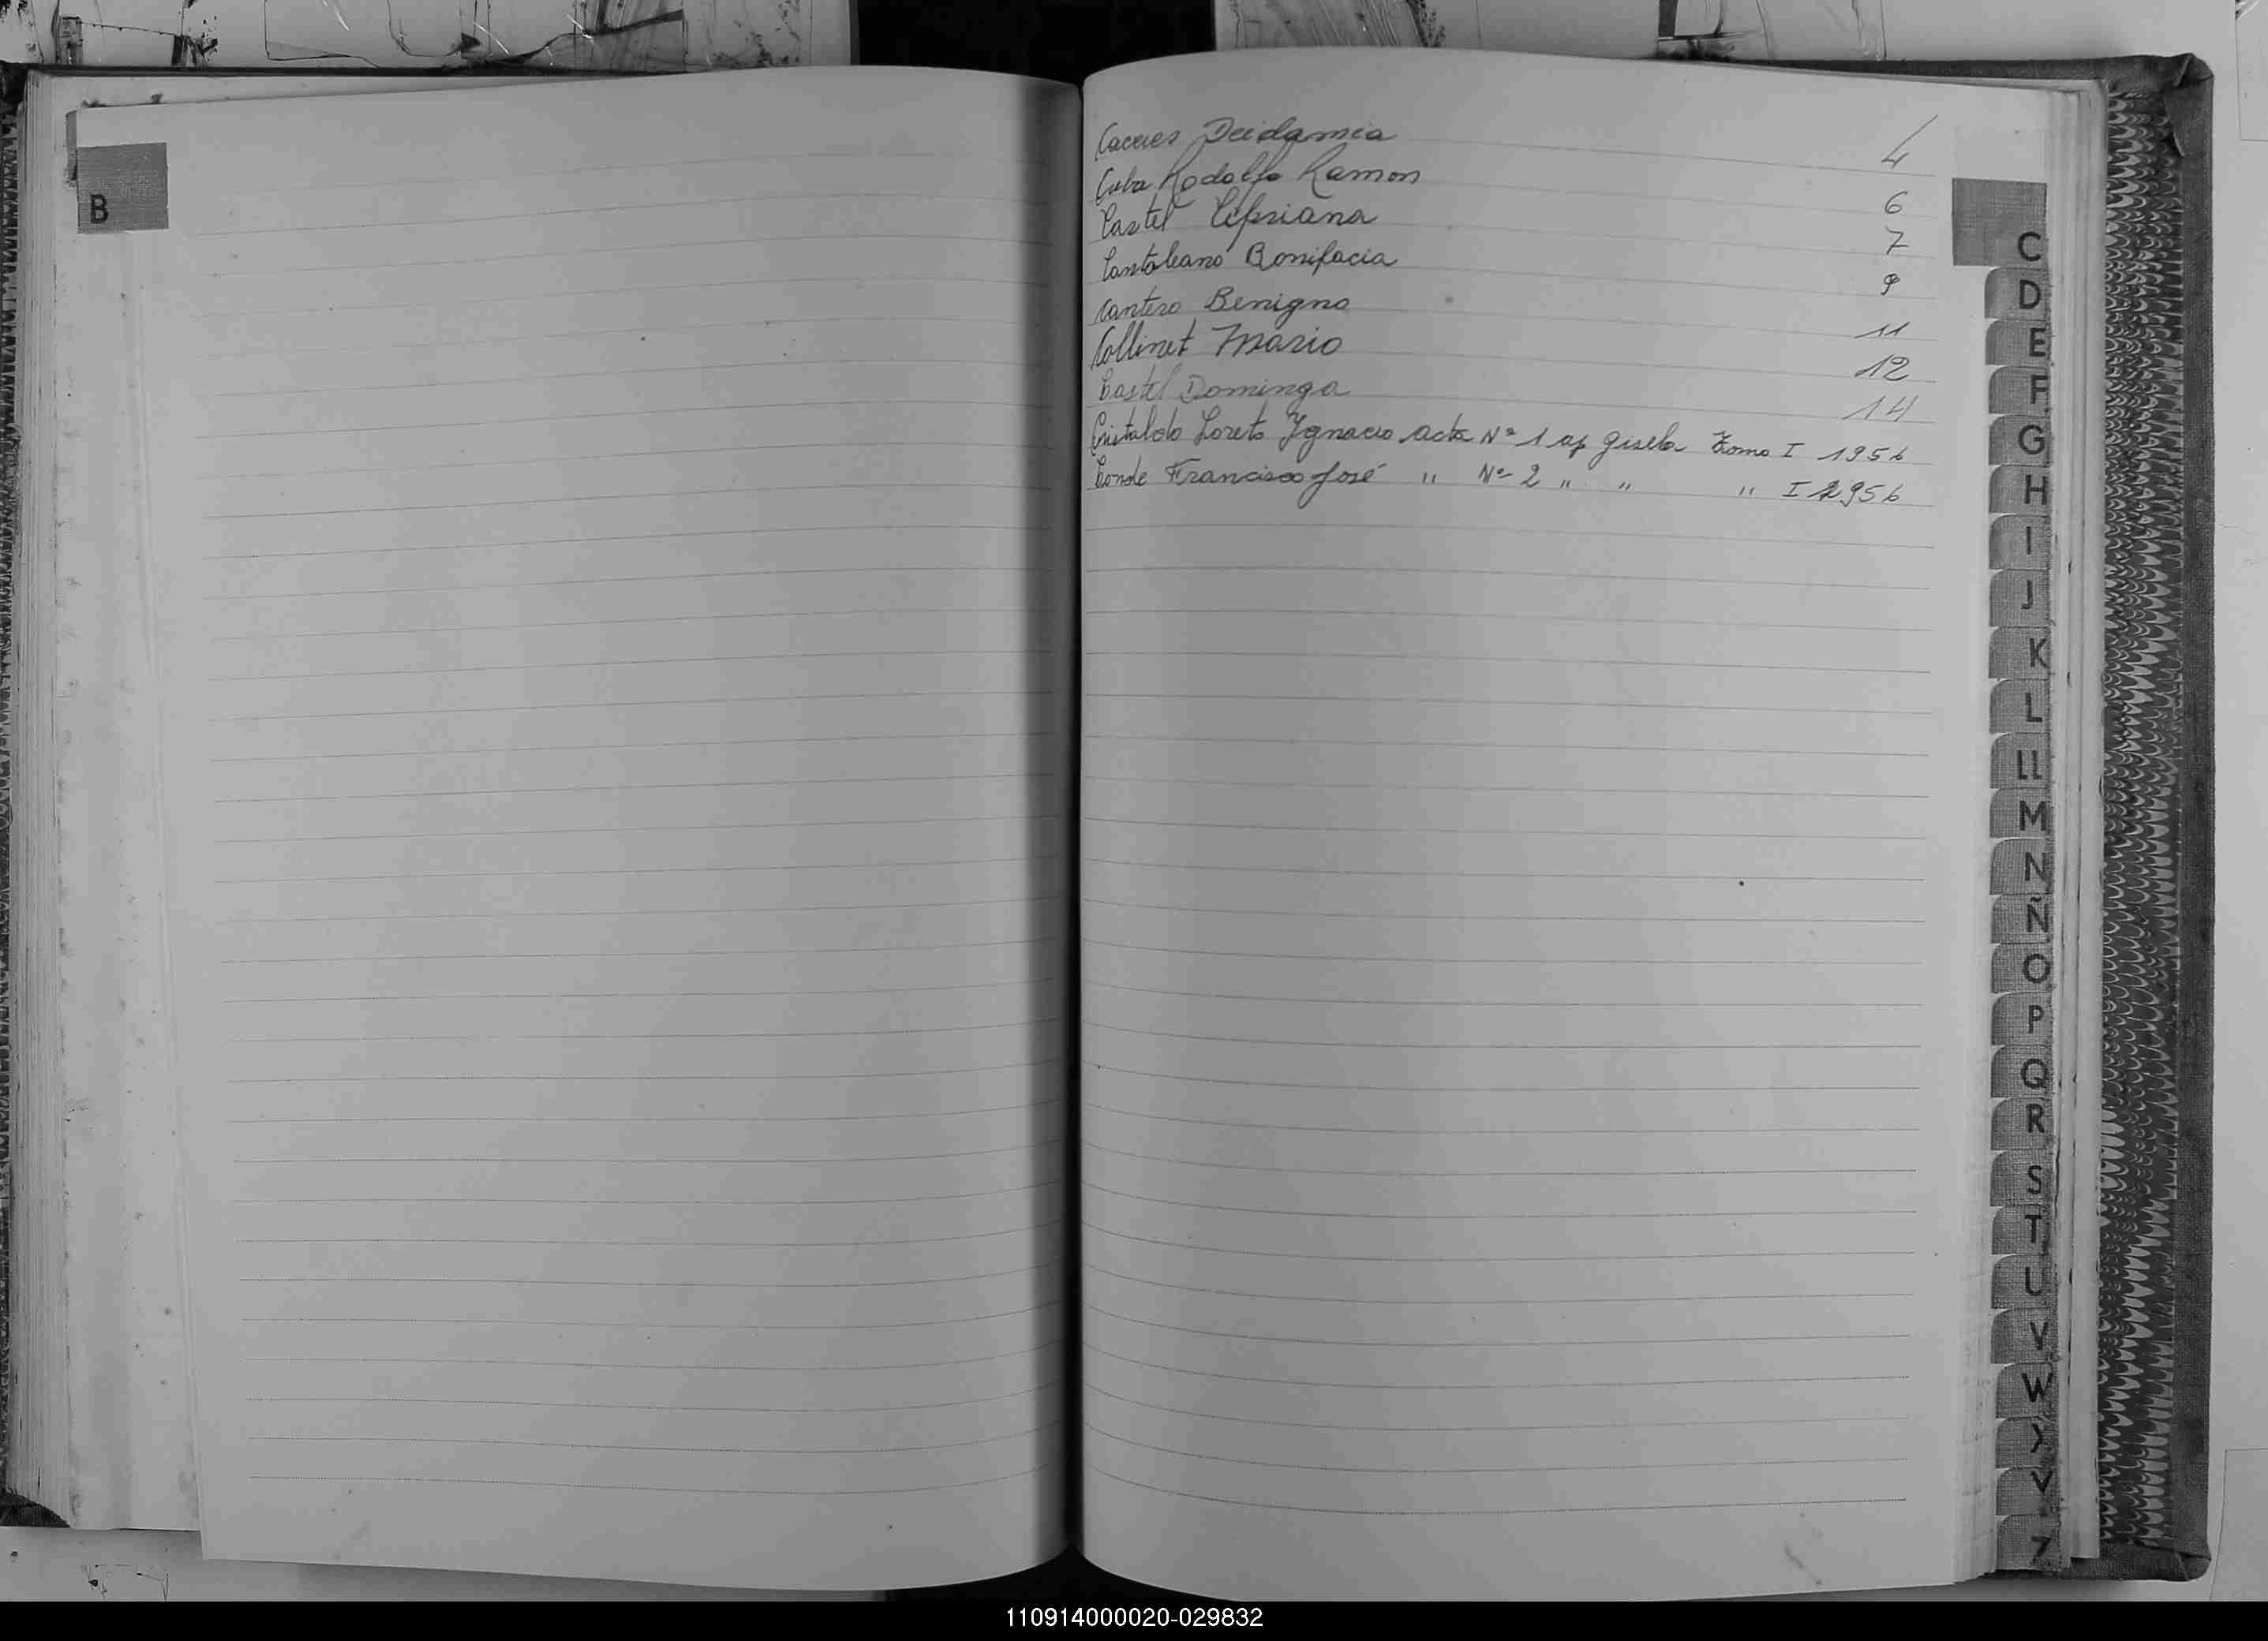 B
Caceres Deidamia 4
Cuba Rodolfo Ramon 6
Castel Cipriana 7
Cantaleano Bonifacia 9
Cantero Benigno 11
Collinet Mario 12
Castel Dominga 14
Cristaldo Loreto Ygnacio Acta Nº 1 ap Gisela Tomo I 1956
Conde Francisco José " Nº 2 " " " I 1956
C
D
E
F
G
H
I
J
K
L
LL
M
N
Ñ
O
P
Q
R
S
T
U
V
W
Y
Z
110914000020-029832